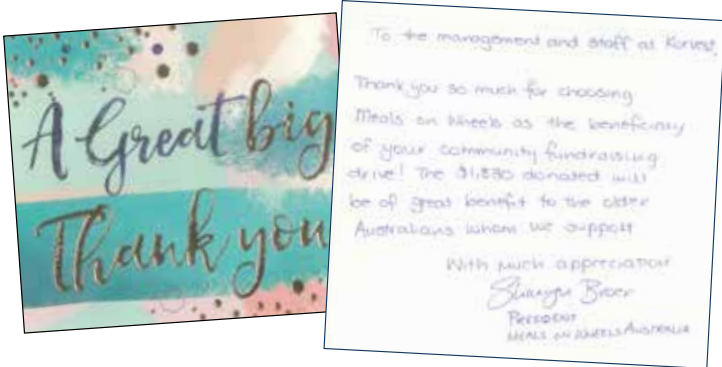 A Great big
Thank you
To the management and staff at Korvest,
Thank you so much for choosing
Meals on Wheels as the beneficiary
of your community fundraising
drive! The $1,830 donated will
be of great benefit to the older
Australians whom we support
With much appreciation
PRESIDENT
MEALS ON WHEELS AUSTRALIA